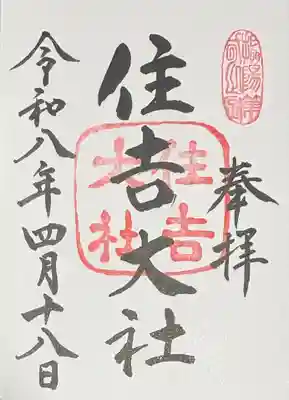 奉拝
住吉大社
住吉
大社
令和八年四月十八日